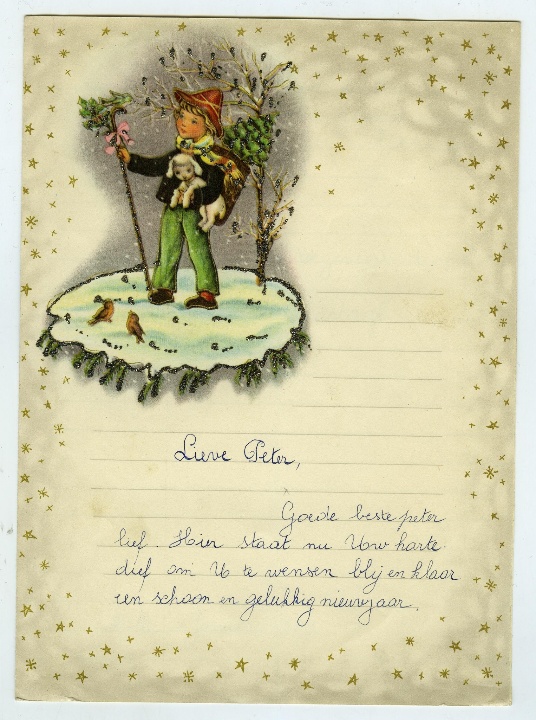 Lieve Peter,
Goede beste peter
lief. Hier staat nu Uw harte
dief om U te wensen blij en klaar
een schoon en gelukkig nieuwjaar.